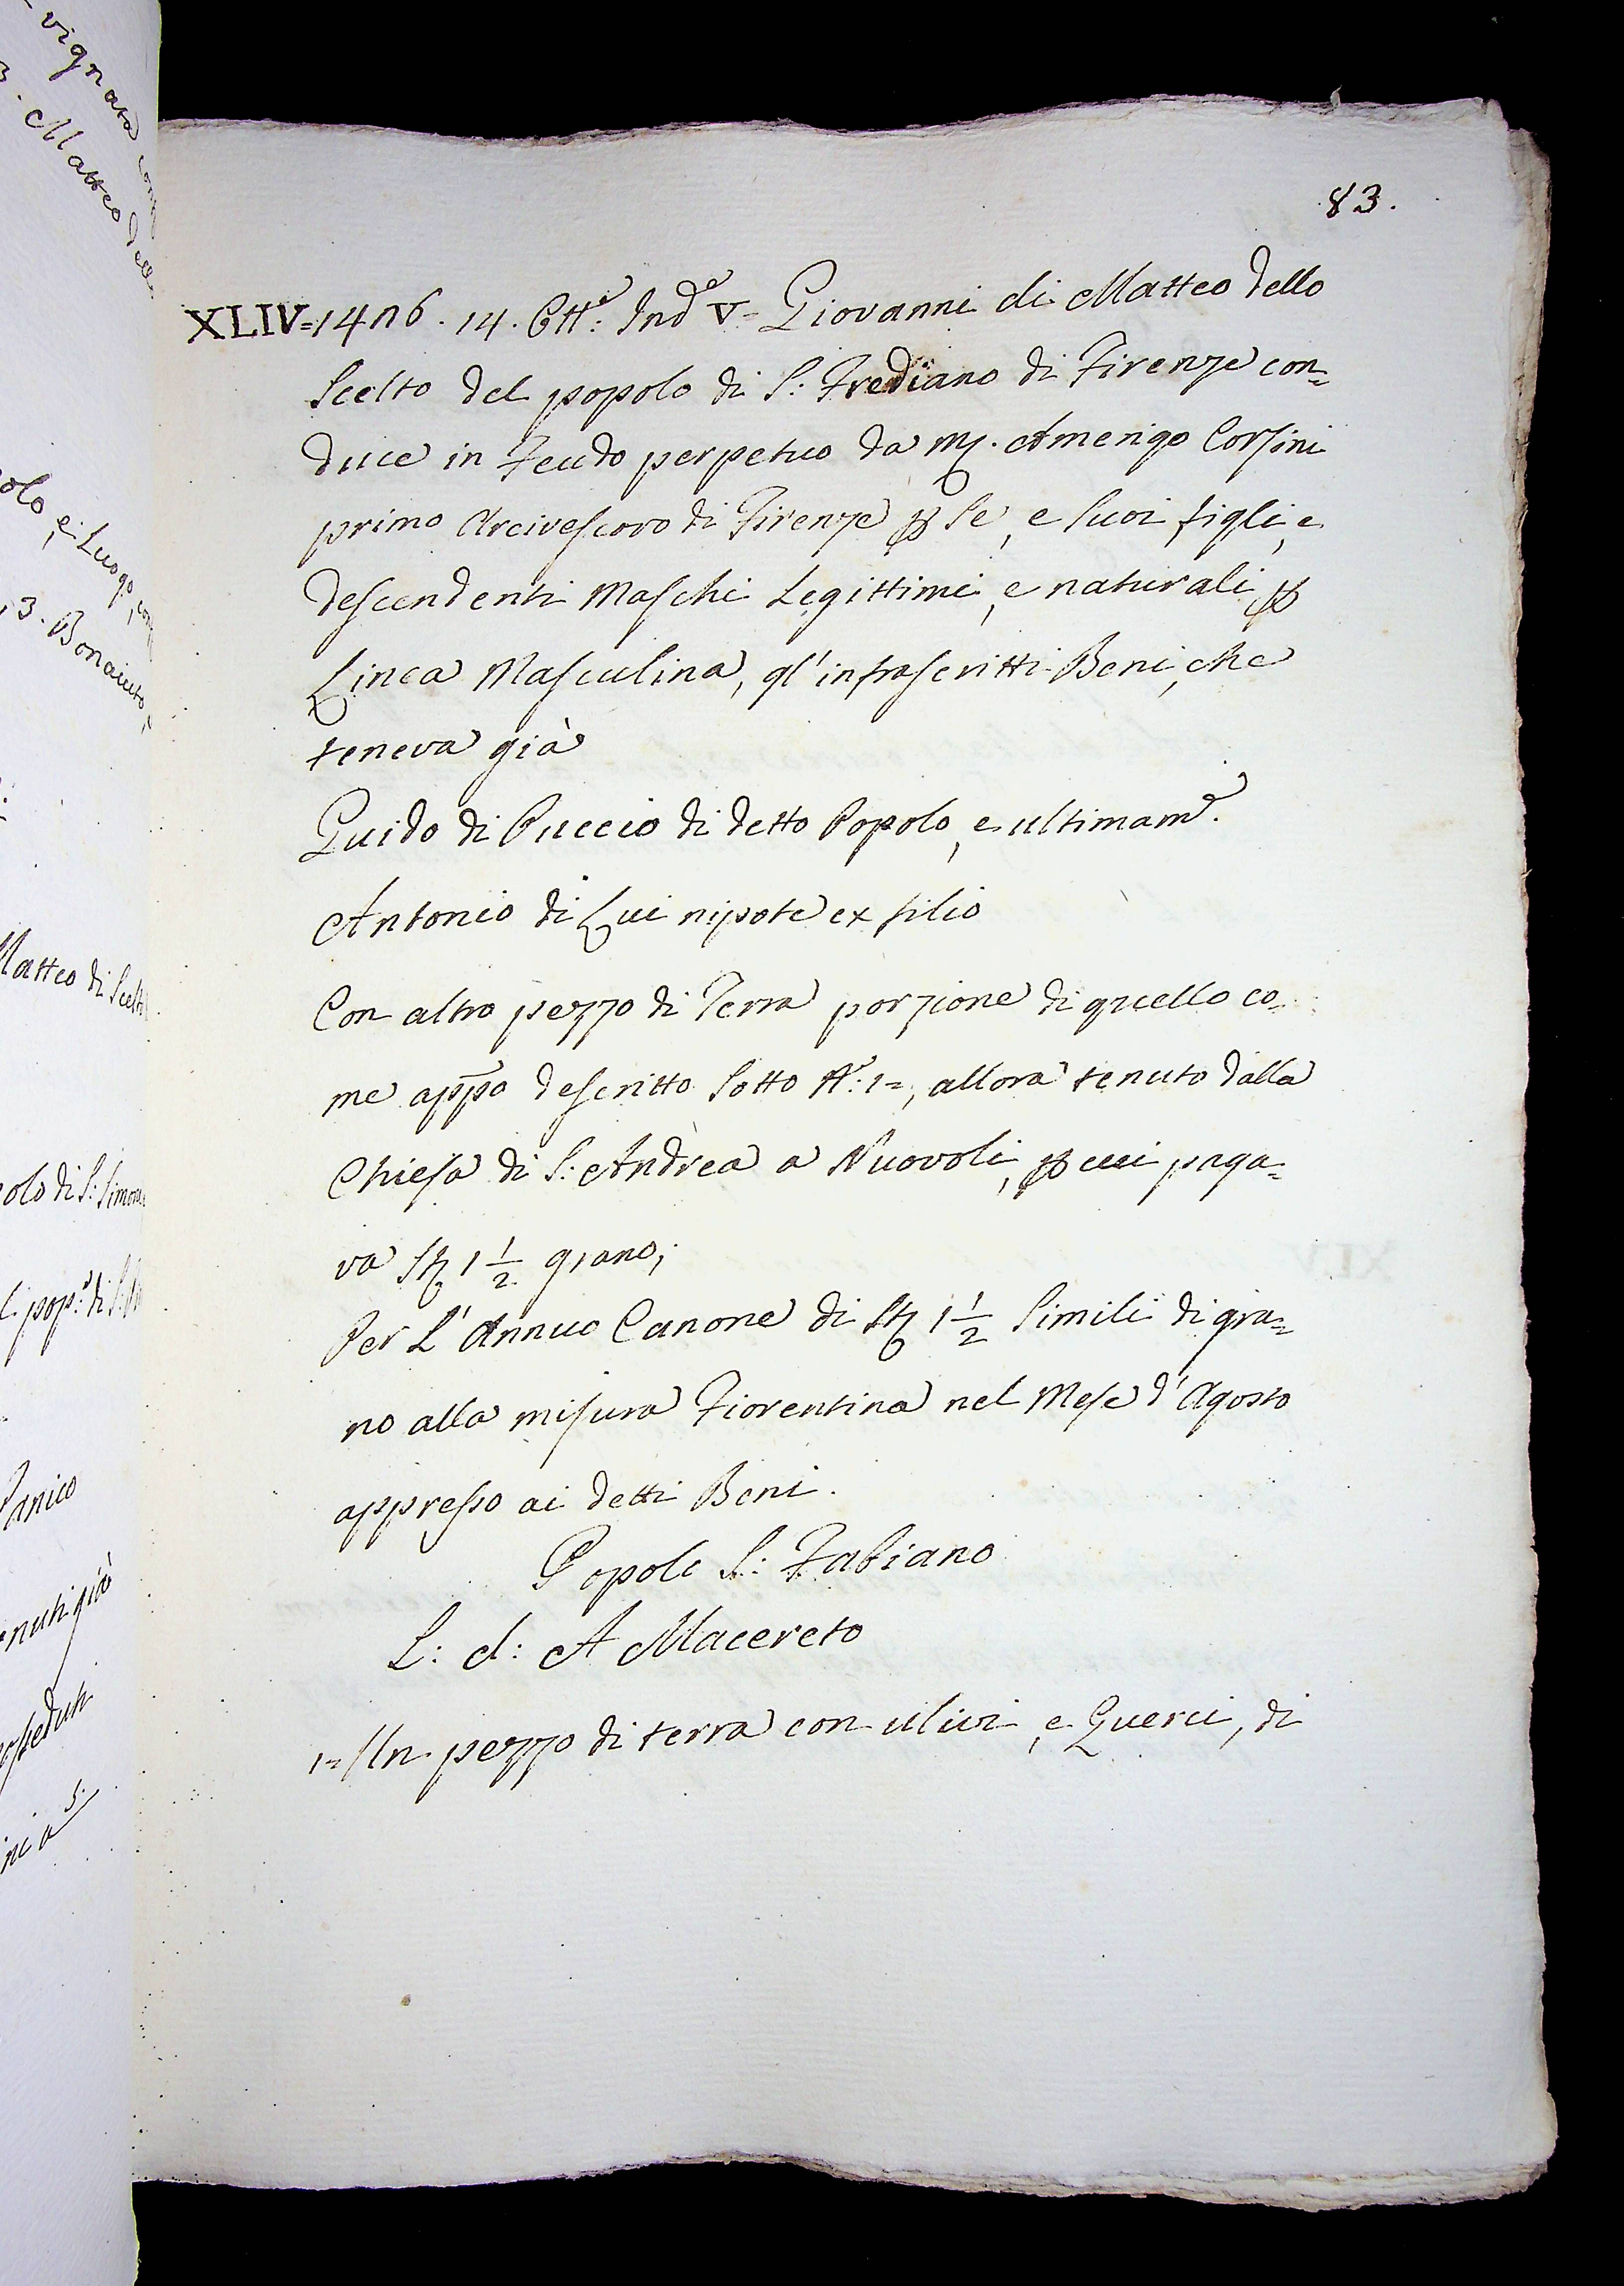 83.
XLIV=1426. 14. Ott.e Ind.e V= Giovanni di Matteo dello
Scelto del popolo di S: Frediano di Firenze con=
duce in Feudo perpetuo da Mg. Amerigo Corsini
primo Arcivescovo di Firenze ꝑ Se, e Suoi figli, e
descendenti Maschi Legittimi, e naturali ꝑ
Linea Masculina, gl'infrascritti Beni, che
teneva già
Guido di Puccio di detto Popolo, e ultimam.e
Antonio di Lui nipote ex filio
Con altro pezzo di Terra porzione di quello co=
me app̄o descritto Sotto N.o: 1=, allora tenuto dalla
Chiesa di S: Andrea a Nuovoli, ꝑ cui paga=
va Stȷ 1 1/2 grano;
Per L'Annuo Canone di Stȷ 1 1/2 Simili di gra=
no alla misura Fiorentina nel Mese d'Agosto
appresso ai detti Beni.
Popolo S: Fabiano
L: d: A Macereto
1= Un pezzo di terra con ulivi, e Querci, di